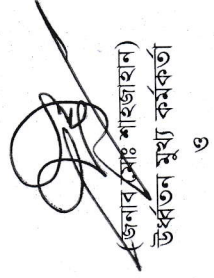 (জনাব মোঃ শাহজাহান)
উর্ধ্বতন মুখ্য কর্মকর্তা
ও